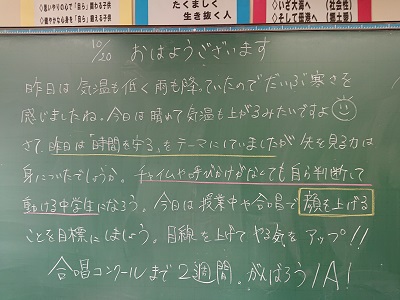 ◇思いやりの心で「自ら」関わる子供
◇健やかな心身を「自ら」鍛える子供
たくましく
生き抜く人
◇いざ大海へ (社会性)
◇そして母港へ (郷土愛)
10/20 おはようございます
昨日は気温も低く雨も降っていたのでだいぶ寒さを
感じましたね。今日は晴れて気温も上がるみたいですよ
さて、昨日は「時間を守る」もテーマにしていましたが先を見る力は
身についたでしょうか。チャイムや呼びかけがなくても自ら判断して
動ける中学生になろう。今日は授業中や合唱で顔を上げる
ことを目標にしましょう。目線を上げてやる気をアップ!!
合唱コンクールまで2週間。がんばろう1A!